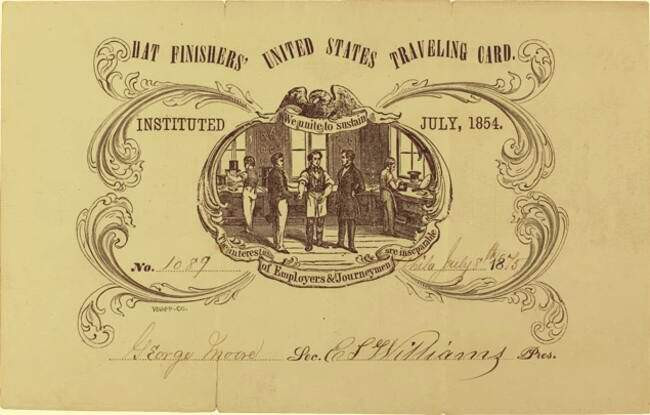 HAT FINISHERS' UNITED STATES TRAVELING CARD.
We unite to sustain
INSTITUTED JULY, 1854.
The interests
of Employers & Journeymen
are inseparable
No. 1089 Phila July 8th 1875
KNAPP-CO.
George Moore Sec. E S Williams Pres.